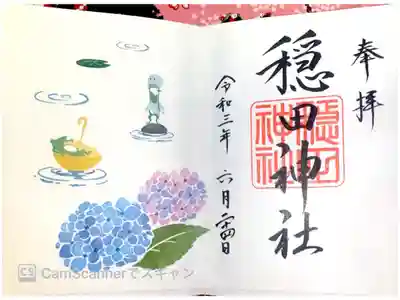 奉拝
穏田神社
令和三年 六月二十四日
CS CamScannerでスキャン